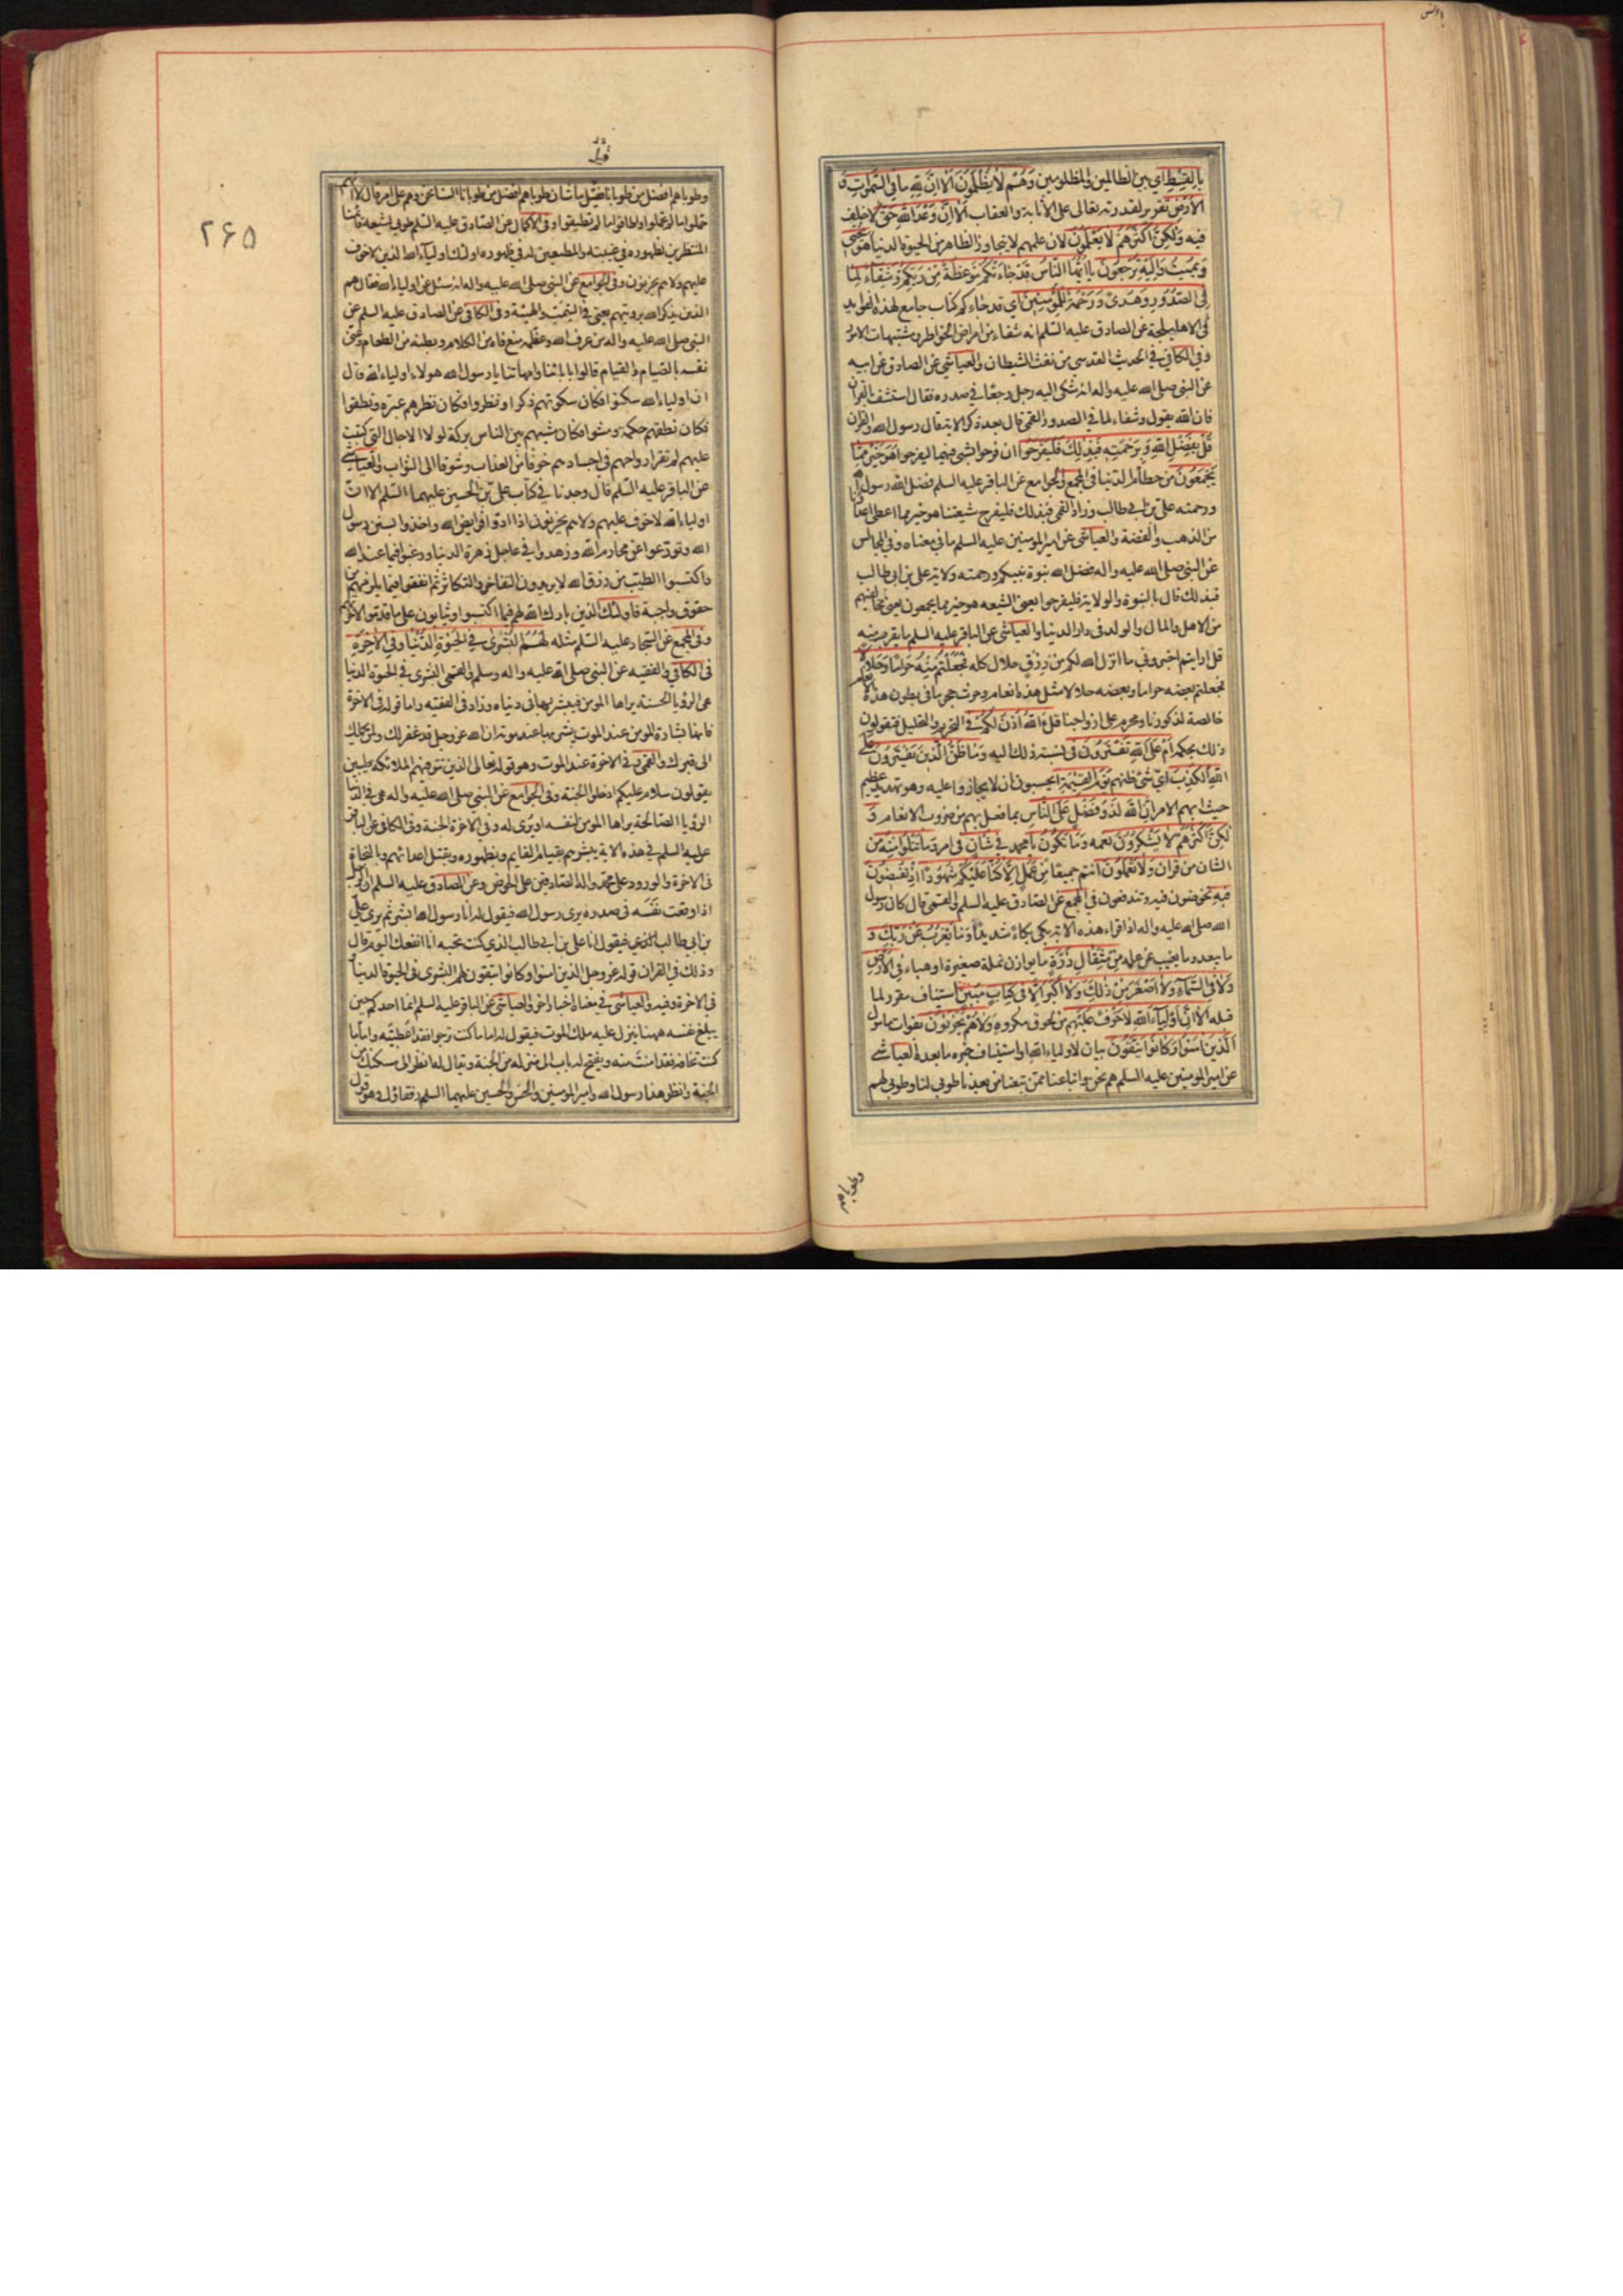 بِالْقِسْطِ اي بين الظالمين والمظلومين وَهُمْ لَا يُظْلَمُونَ أَلَا اِنَّ لِلّٰهِ مَا فِي السَّمٰوَاتِ وَ
الْاَرْضِ تقرير لقدرته تعالى على الاثابة والعقاب اَلَا اِنَّ وَعْدَ اللّٰهِ حَقٌّ لا خلف
فيه وَلٰكِنَّ اَكْثَرَهُمْ لَا يَعْلَمُونَ لان علمهم لا يتجاوز الظاهر من الحيوة الدنيا هُوَ يُحْيِي
وَيُمِيتُ وَاِلَيْهِ تُرْجَعُونَ يَا اَيُّهَا النَّاسُ قَدْ جَاءَتْكُمْ مَوْعِظَةٌ مِنْ رَبِّكُمْ وَشِفَاءٌ لِمَا
فِي الصُّدُورِ وَهُدًى وَرَحْمَةٌ لِلْمُؤْمِنِينَ اي قد جاءكم كتاب جامع لهذه الفوايد
في الاهليلجة عن الصادق عليه السلم انه شفاء من امراض الخواطر ومشتبهات الامور
وفي الكافي في الحديث القدسي من نفث الشيطان والعياشي عن الصادق عن ابيه
عن النبي صلى الله عليه واله انه شكى اليه رجل وجعًا في صدره فقال استشف بالقران
فان الله يقول وشفاء لما في الصدور القمي قال بعد ذكر الاية قال رسول الله والقران
قُلْ بِفَضْلِ اللّٰهِ وَبِرَحْمَتِهِ فَبِذٰلِكَ فَلْيَفْرَحُوا ان فرحوا بشي فبهما ليفرحوا هُوَ خَيْرٌ مِمَّا
يَجْمَعُونَ من حطام الدنيا في المجمع والجوامع عن الباقر عليه السلم فضل الله رسول الله
ورحمته علي بن ابي طالب وزاد القمي فبذلك فليفرح شيعتنا هو خير مما اعطي اعدائنا
من الذهب والفضة والعياشي عن امير المومنين عليه السلم ما في معناه وفي المجالس
عن النبي صلى الله عليه واله فضل الله نبوة نبيكم ورحمته ولاية علي بن ابي طالب
فبذلك قال بالنبوة والولاية فليفرحوا يعني الشيعه هو خير مما يجمعون يعني مخالفيهم
من الاهل والمال والولد في دار الدنيا والعياشي عن الباقر عليه السلم ما يقرب منه
قل ارايتم اخبروني ما انزل الله لكم من رزق حلال كله فَجَعَلْتُمْ مِنْهُ حَرَامًا وَحَلَالًا
فجعلتم بعضه حراما وبعضه حلالا مثل هذه انعام وحرث حجر ما في بطون هذه الانعام
خالصة لذكورنا ومحرم على ازواجنا قُلْ اٰللّٰهُ اَذِنَ لَكُمْ في التحريم والتحليل فتقولون
ذلك بحكمه اَمْ عَلَى اللّٰهِ تَفْتَرُونَ في نسبة ذلك اليه وَمَا ظَنُّ الَّذِينَ يَفْتَرُونَ عَلَى
اللّٰهِ الْكَذِبَ اي شيء ظنهم يَوْمَ الْقِيٰمَةِ ايحسبون ان لا يجازوا عليه وهو تهديد عظيم
حيث ابهم الامر اِنَّ اللّٰهَ لَذُو فَضْلٍ عَلَى النَّاسِ بما فعل بهم من ضروب الانعام وَ
لٰكِنَّ اَكْثَرَهُمْ لَا يَشْكُرُونَ نعمه وَمَا تَكُونُ يا محمد فِي شَاْنٍ في امر وَمَا تَتْلُوا مِنْهُ من
الشان مِنْ قُرْاٰنٍ وَلَا تَعْمَلُونَ انتم جميعًا مِنْ عَمَلٍ اِلَّا كُنَّا عَلَيْكُمْ شُهُودًا اِذْ تُفِيضُونَ
فِيهِ تخوضون فيه وتندفعون في المجمع عن الصادق عليه السلم والقمي قال كان رسول
الله صلى الله عليه واله اذا قراء هذه الاية بكى بكاءً شديدًا وَمَا يَعْزُبُ عَنْ رَبِّكَ و
ما يبعد وما يغيب عن علمه مِنْ مِثْقَالِ ذَرَّةٍ ما يوازن نملة صغيرة او هباء فِي الْاَرْضِ
وَلَا فِي السَّمَاءِ وَلَا اَصْغَرَ مِنْ ذٰلِكَ وَلَا اَكْبَرَ اِلَّا فِي كِتَابٍ مُبِينٍ استيناف مقرر لما
قبله اَلَا اِنَّ اَوْلِيَاءَ اللّٰهِ لَا خَوْفٌ عَلَيْهِمْ من لحوق مكروه وَلَا هُمْ يَحْزَنُونَ بفوات مامول
اَلَّذِينَ اٰمَنُوا وَكَانُوا يَتَّقُونَ بيان لاولياء الله او استيناف خبره ما بعده العياشي
عن امير المومنين عليه السلم هم نحن واتباعنا ممن تبعنا من بعدنا طوبى لنا وطوبى لهم
وطوباهم
٢۶۵
وطوباهم افضل من طوبانا قيل ما شان طوباهم افضل من طوبانا السنا نحن وهم على امر قال لا انهم
حملوا ما لم تحملوا واطاقوا ما لم تطيقوا وفي الاكمال عن الصادق عليه السلم طوبى لشيعة قائمنا
المنتظرين لظهوره في غيبته والمطيعين له في ظهوره اولئك اولياء الله الذين لا خوف
عليهم ولا هم يحزنون وفي الجوامع عن النبي صلى الله عليه واله انه سئل عن اولياء الله فقال هم
الذين يذكر الله برويتهم يعني في السمت والهيئة وفي الكافي عن الصادق عليه السلم عن
النبي صلى الله عليه واله من عرف الله وعظمه منع فاه من الكلام وبطنه من الطعام وعنى
نفسه بالصيام والقيام قالوا بابائنا وامهاتنا يا رسول الله هولاء اولياء الله قال
ان اولياء الله سكتوا فكان سكوتهم ذكرا ونظروا فكان نظرهم عبرة ونطقوا
فكان نطقهم حكمة ومشوا فكان مشيهم بين الناس بركة لولا الاجال التي كتبت
عليهم لم تقر ارواحهم في اجسادهم خوفًا من العذاب وشوقا الى الثواب والعياشي
عن الباقر عليه السلم قال وجدنا في كتاب علي بن الحسين عليهما السلم الا ان
اولياء الله لا خوف عليهم ولا هم يحزنون اذا ادوا فرايض الله واخذوا بسنن رسول
الله وتورعوا عن محارم الله وزهدوا في عاجل زهرة الدنيا ورغبوا فيما عند الله
واكتسبوا الطيب من رزق الله لا يريدون التفاخر والتكاثر ثم انفقوا فيما يلزمهم من
حقوق واجبة فاولئك الذين بارك الله لهم فيما اكتسبوا ويثابون على ما قدموا لاخرتهم
وفي المجمع عن السجاد عليه السلم مثله لَهُمُ الْبُشْرٰى فِي الْحَيٰوةِ الدُّنْيَا وَفِي الْاٰخِرَةِ
في الكافي والفقيه عن النبي صلى الله عليه واله وسلم والقمي البشرى في الحيوة الدنيا
هي الرؤيا الحسنة يراها المومن فيبشر بها في دنياه وزاد في الفقيه واما قوله في الاخرة
فانها بشارة المومن عند الموت يبشر بها عند موته ان الله عز وجل قد غفر لك ولمن يحملك
الى قبرك والقمي في الاخرة عند الموت وهو قوله تعالى الذين تتوفيهم الملائكة طيبين
يقولون سلام عليكم ادخلوا الجنة وفي الجوامع عن النبي صلى الله عليه واله هي في الدنيا
الرؤيا الصالحة يراها المومن لنفسه او يرى له وفي الاخرة الجنة وفي الكافي عن الباقر
عليه السلم في هذه الاية يبشرهم بقيام القايم وبظهوره وبقتل اعدائهم وبالنجاة
في الاخرة والورود على محمد واله الصادقين على الحوض وعن الصادق عليه السلم ان الرجل
اذا وقعت نفسه في صدره يرى رسول الله فيقول له انا رسول الله ابشر ثم يرى علي
بن ابي طالب فيقول انا علي بن ابي طالب الذي كنت تحبه انا انفعك اليوم قال
وذلك في القران قوله عز وجل الذين امنوا وكانوا يتقون لهم البشرى في الحيوة الدنيا و
في الاخرة وفيه والعياشي في معناه اخبار اخر والعياشي عن الباقر عليه السلم انما احدكم حين
يبلغ نفسه ههنا ينزل عليه ملك الموت فيقول له اما ما كنت ترجوا فقد اعطيته واما ما
كنت تخافه فقد امنت منه ويفتح له باب الى منزله من الجنة ويقال له انظر الى مسكنك من
الجنة وانظر هذا رسول الله وامير المومنين والحسن والحسين عليهما السلم رفقاؤك وهو قول